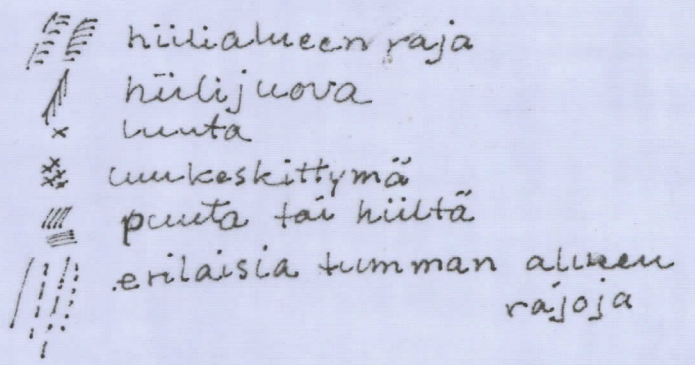 hiilialueen raja
hiilijuova
luuta
luukeskittymä
puuta tai hiiltä
erilaisia tumman alueen
rajoja